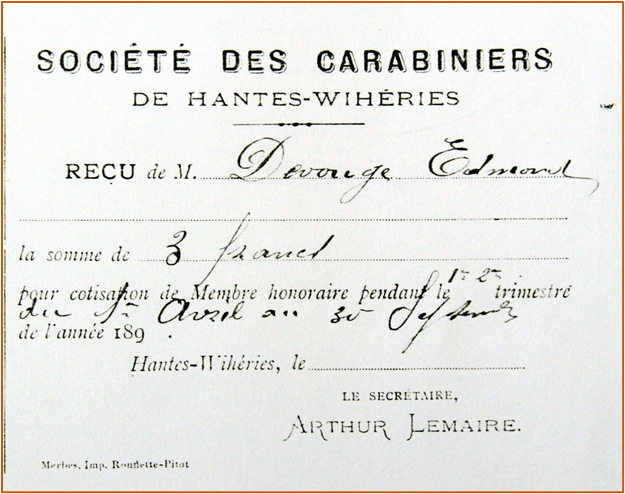 SOCIÉTÉ DES CARABINIERS
DE HANTES-WIHÉRIES
REÇU de M. Devouge Edmond
la somme de 3 francs
pour cotisation de Membre honoraire pendant le 1er 2me trimestre
du 1er Avril au 30 Septembre
de l'année 189 .
Hantes-Wihéries, le
LE SECRÉTAIRE,
ARTHUR LEMAIRE.
Merbes, Imp. Rouflette-Pitot